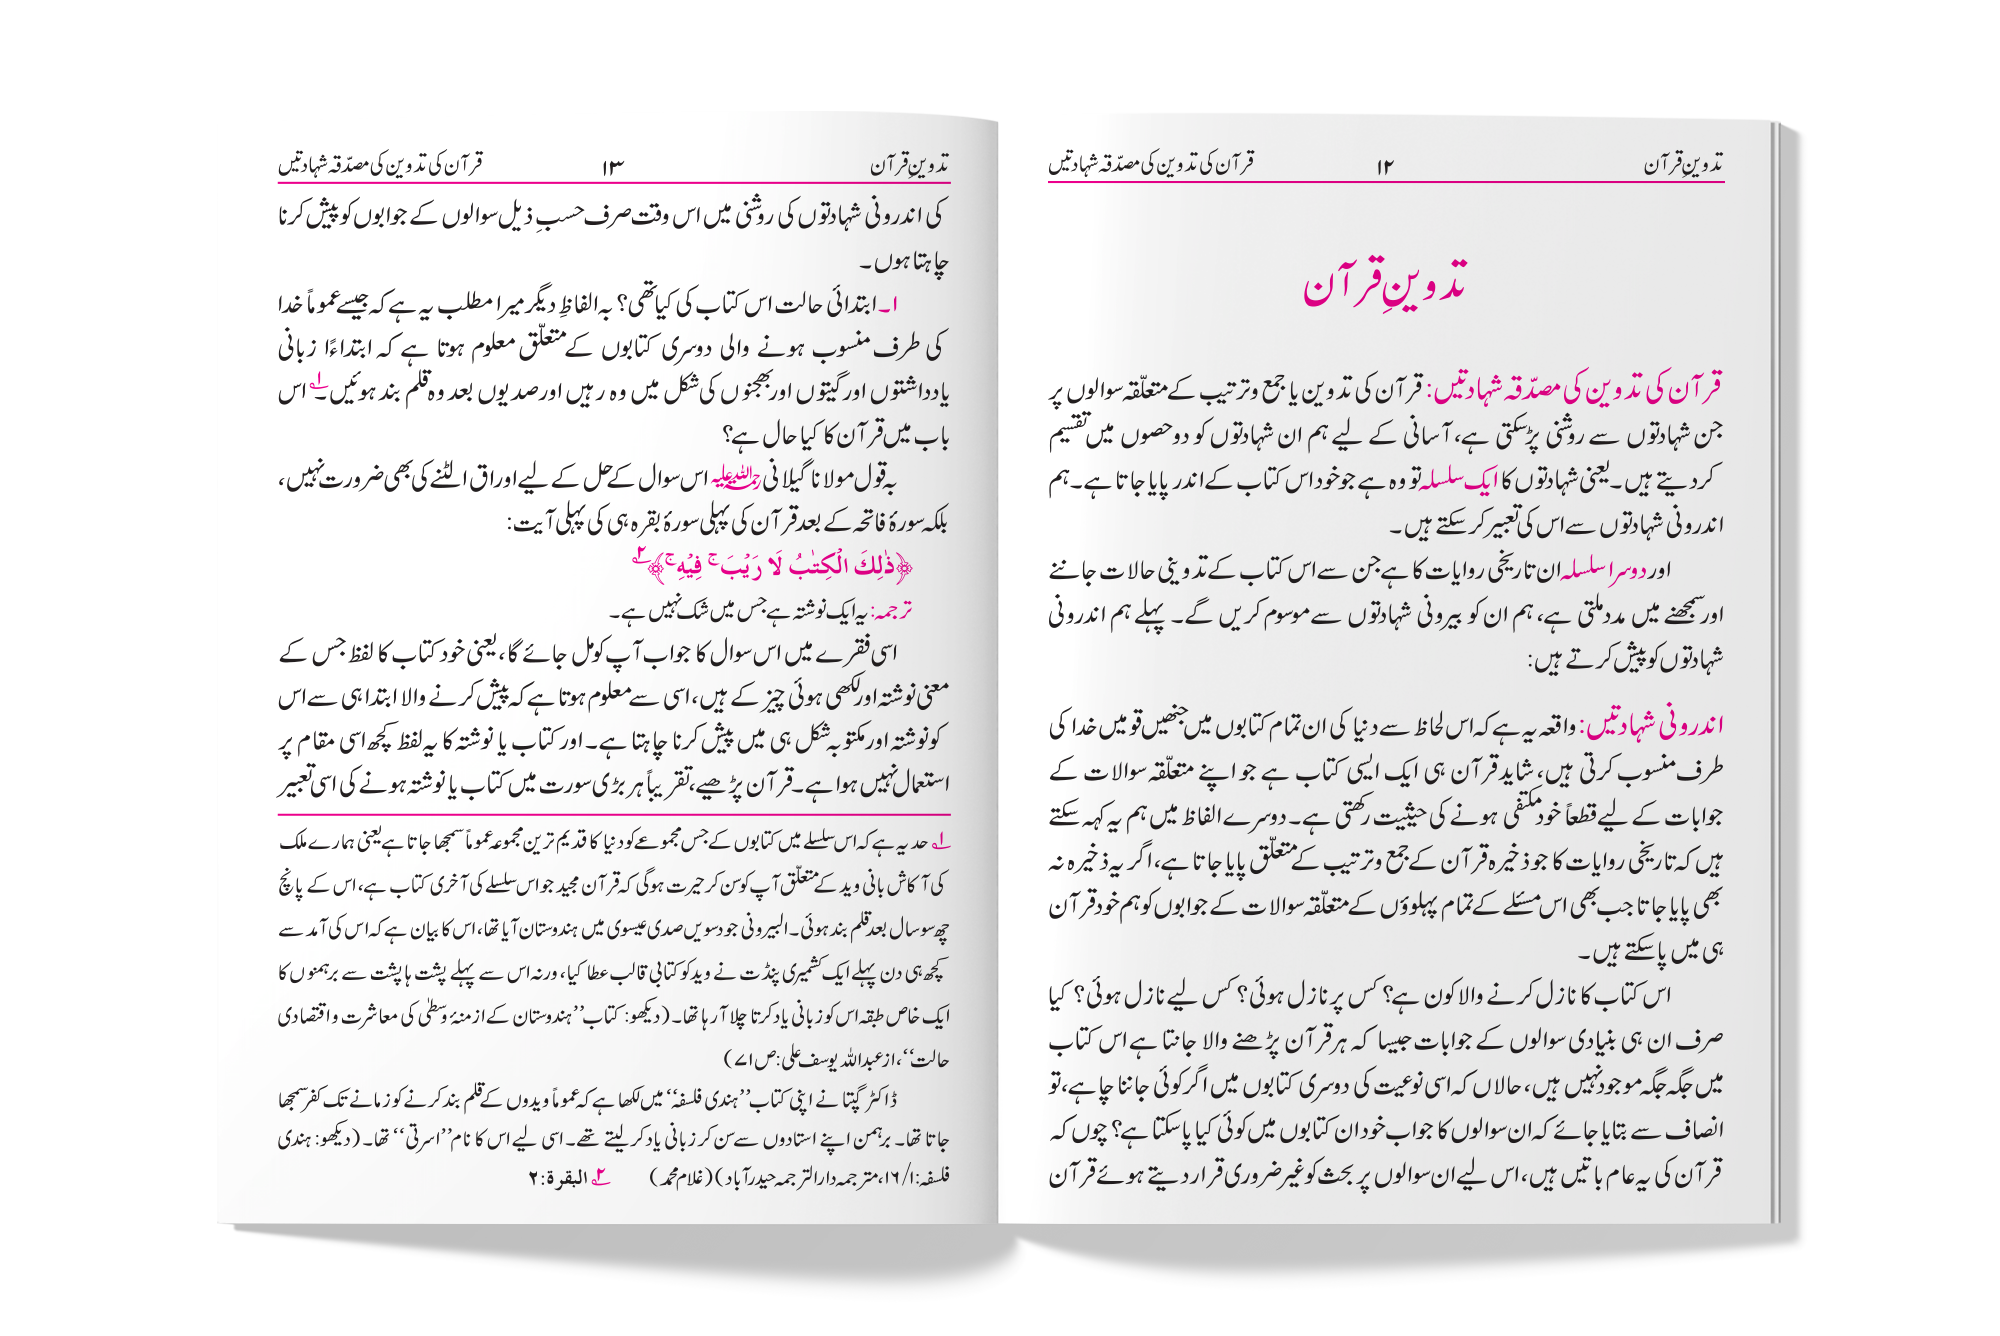 تدوینِ قرآن ۱۲ قرآن کی تدوین کی مصدّقہ شہادتیں
تدوینِ قرآن
قرآن کی تدوین کی مصدّقہ شہادتیں: قرآن کی تدوین یا جمع وترتیب کے متعلّقہ سوالوں پر
جن شہادتوں سے روشنی پڑسکتی ہے، آسانی کے لیے ہم ان شہادتوں کو دو حصوں میں تقسیم
کردیتے ہیں۔ یعنی شہادتوں کا ایک سلسلہ تو وہ ہے جو خود اس کتاب کے اندر پایا جاتا ہے۔ ہم
اندرونی شہادتوں سے اس کی تعبیر کرسکتے ہیں۔
اور دوسرا سلسلہ ان تاریخی روایات کا ہے جن سے اس کتاب کے تدوینی حالات جاننے
اور سمجھنے میں مدد ملتی ہے، ہم ان کو بیرونی شہادتوں سے موسوم کریں گے۔ پہلے ہم اندرونی
شہادتوں کو پیش کرتے ہیں:
اندرونی شہادتیں: واقعہ یہ ہے کہ اس لحاظ سے دنیا کی ان تمام کتابوں میں جنھیں قومیں خدا کی
طرف منسوب کرتی ہیں، شاید قرآن ہی ایک ایسی کتاب ہے جو اپنے متعلّقہ سوالات کے
جوابات کے لیے قطعاً خود مکتفی ہونے کی حیثیت رکھتی ہے۔ دوسرے الفاظ میں ہم یہ کہہ سکتے
ہیں کہ تاریخی روایات کا جو ذخیرہ قرآن کے جمع وترتیب کے متعلّق پایا جاتا ہے، اگر یہ ذخیرہ نہ
بھی پایا جاتا جب بھی اس مسئلے کے تمام پہلوؤں کے متعلّقہ سوالات کے جوابوں کو ہم خود قرآن
ہی میں پاسکتے ہیں۔
اس کتاب کا نازل کرنے والا کون ہے؟ کس پر نازل ہوئی؟ کس لیے نازل ہوئی؟ کیا
صرف ان ہی بنیادی سوالوں کے جوابات جیسا کہ ہر قرآن پڑھنے والا جانتا ہے اس کتاب
میں جگہ جگہ موجود نہیں ہیں، حالاں کہ اسی نوعیت کی دوسری کتابوں میں اگر کوئی جاننا چاہے، تو
انصاف سے بتایا جائے کہ ان سوالوں کا جواب خود ان کتابوں میں کوئی کیا پاسکتا ہے؟ چوں کہ
قرآن کی یہ عام باتیں ہیں، اس لیے ان سوالوں پر بحث کو غیر ضروری قرار دیتے ہوئے قرآن
تدوینِ قرآن ۱۳ قرآن کی تدوین کی مصدّقہ شہادتیں
کی اندرونی شہادتوں کی روشنی میں اس وقت صرف حسبِ ذیل سوالوں کے جوابوں کو پیش کرنا
چاہتا ہوں۔
۱۔ ابتدائی حالت اس کتاب کی کیا تھی؟ بہ الفاظِ دیگر میرا مطلب یہ ہے کہ جیسے عموماً خدا
کی طرف منسوب ہونے والی دوسری کتابوں کے متعلّق معلوم ہوتا ہے کہ ابتداءًا زبانی
یادداشتوں اور گیتوں اور بھجنوں کی شکل میں وہ رہیں اور صدیوں بعد وہ قلم بند ہوئیں۔ ۱؎ اس
باب میں قرآن کا کیا حال ہے؟
بہ قول مولانا گیلانی رحمۃ اللہ علیہ اس سوال کے حل کے لیے اوراق الٹنے کی بھی ضرورت نہیں،
بلکہ سورۂ فاتحہ کے بعد قرآن کی پہلی سورۂ بقرہ ہی کی پہلی آیت:
﴿ذٰلِكَ الْكِتٰبُ لَا رَيْبَ ۚ فِيْهِ ۚ﴾ ۲؎
ترجمہ: یہ ایک نوشتہ ہے جس میں شک نہیں ہے۔
اسی فقرے میں اس سوال کا جواب آپ کو مل جائے گا، یعنی خود کتاب کا لفظ جس کے
معنی نوشتہ اور لکھی ہوئی چیز کے ہیں، اسی سے معلوم ہوتا ہے کہ پیش کرنے والا ابتدا ہی سے اس
کو نوشتہ اور مکتوبہ شکل ہی میں پیش کرنا چاہتا ہے۔ اور کتاب یا نوشتہ کا یہ لفظ کچھ اسی مقام پر
استعمال نہیں ہوا ہے۔ قرآن پڑھیے، تقریباً ہر بڑی سورت میں کتاب یا نوشتہ ہونے کی اسی تعبیر
۱؎ حد یہ ہے کہ اس سلسلے میں کتابوں کے جس مجموعے کو دنیا کا قدیم ترین مجموعہ عموماً سمجھا جاتا ہے یعنی ہمارے ملک
کی آکاش بانی وید کے متعلّق آپ کو سن کر حیرت ہوگی کہ قرآن مجید جو اس سلسلے کی آخری کتاب ہے، اس کے پانچ
چھ سو سال بعد قلم بند ہوئی۔ البیرونی جو دسویں صدی عیسوی میں ہندوستان آیا تھا، اس کا بیان ہے کہ اس کی آمد سے
کچھ ہی دن پہلے ایک کشمیری پنڈت نے وید کو کتابی قالب عطا کیا، ورنہ اس سے پہلے پشت ہا پشت سے برہمنوں کا
ایک خاص طبقہ اس کو زبانی یاد کرتا چلا آرہا تھا۔ (دیکھو: کتاب ’’ہندوستان کے ازمنۂ وسطیٰ کی معاشرت و اقتصادی
حالت‘‘، از عبداللہ یوسف علی: ص ۷۱)
ڈاکٹر گپتا نے اپنی کتاب ’’ہندی فلسفہ‘‘ میں لکھا ہے کہ عموماً ویدوں کے قلم بند کرنے کو زمانے تک کفر سمجھا
جاتا تھا۔ برہمن اپنے استادوں سے سن کر زبانی یاد کرلیتے تھے۔ اسی لیے اس کا نام ’’اسرتی‘‘ تھا۔ (دیکھو: ہندی
فلسفہ: ۱/۱۶، مترجمہ دارالترجمہ حیدرآباد) (غلام محمد) ۲؎ البقرة: ۲